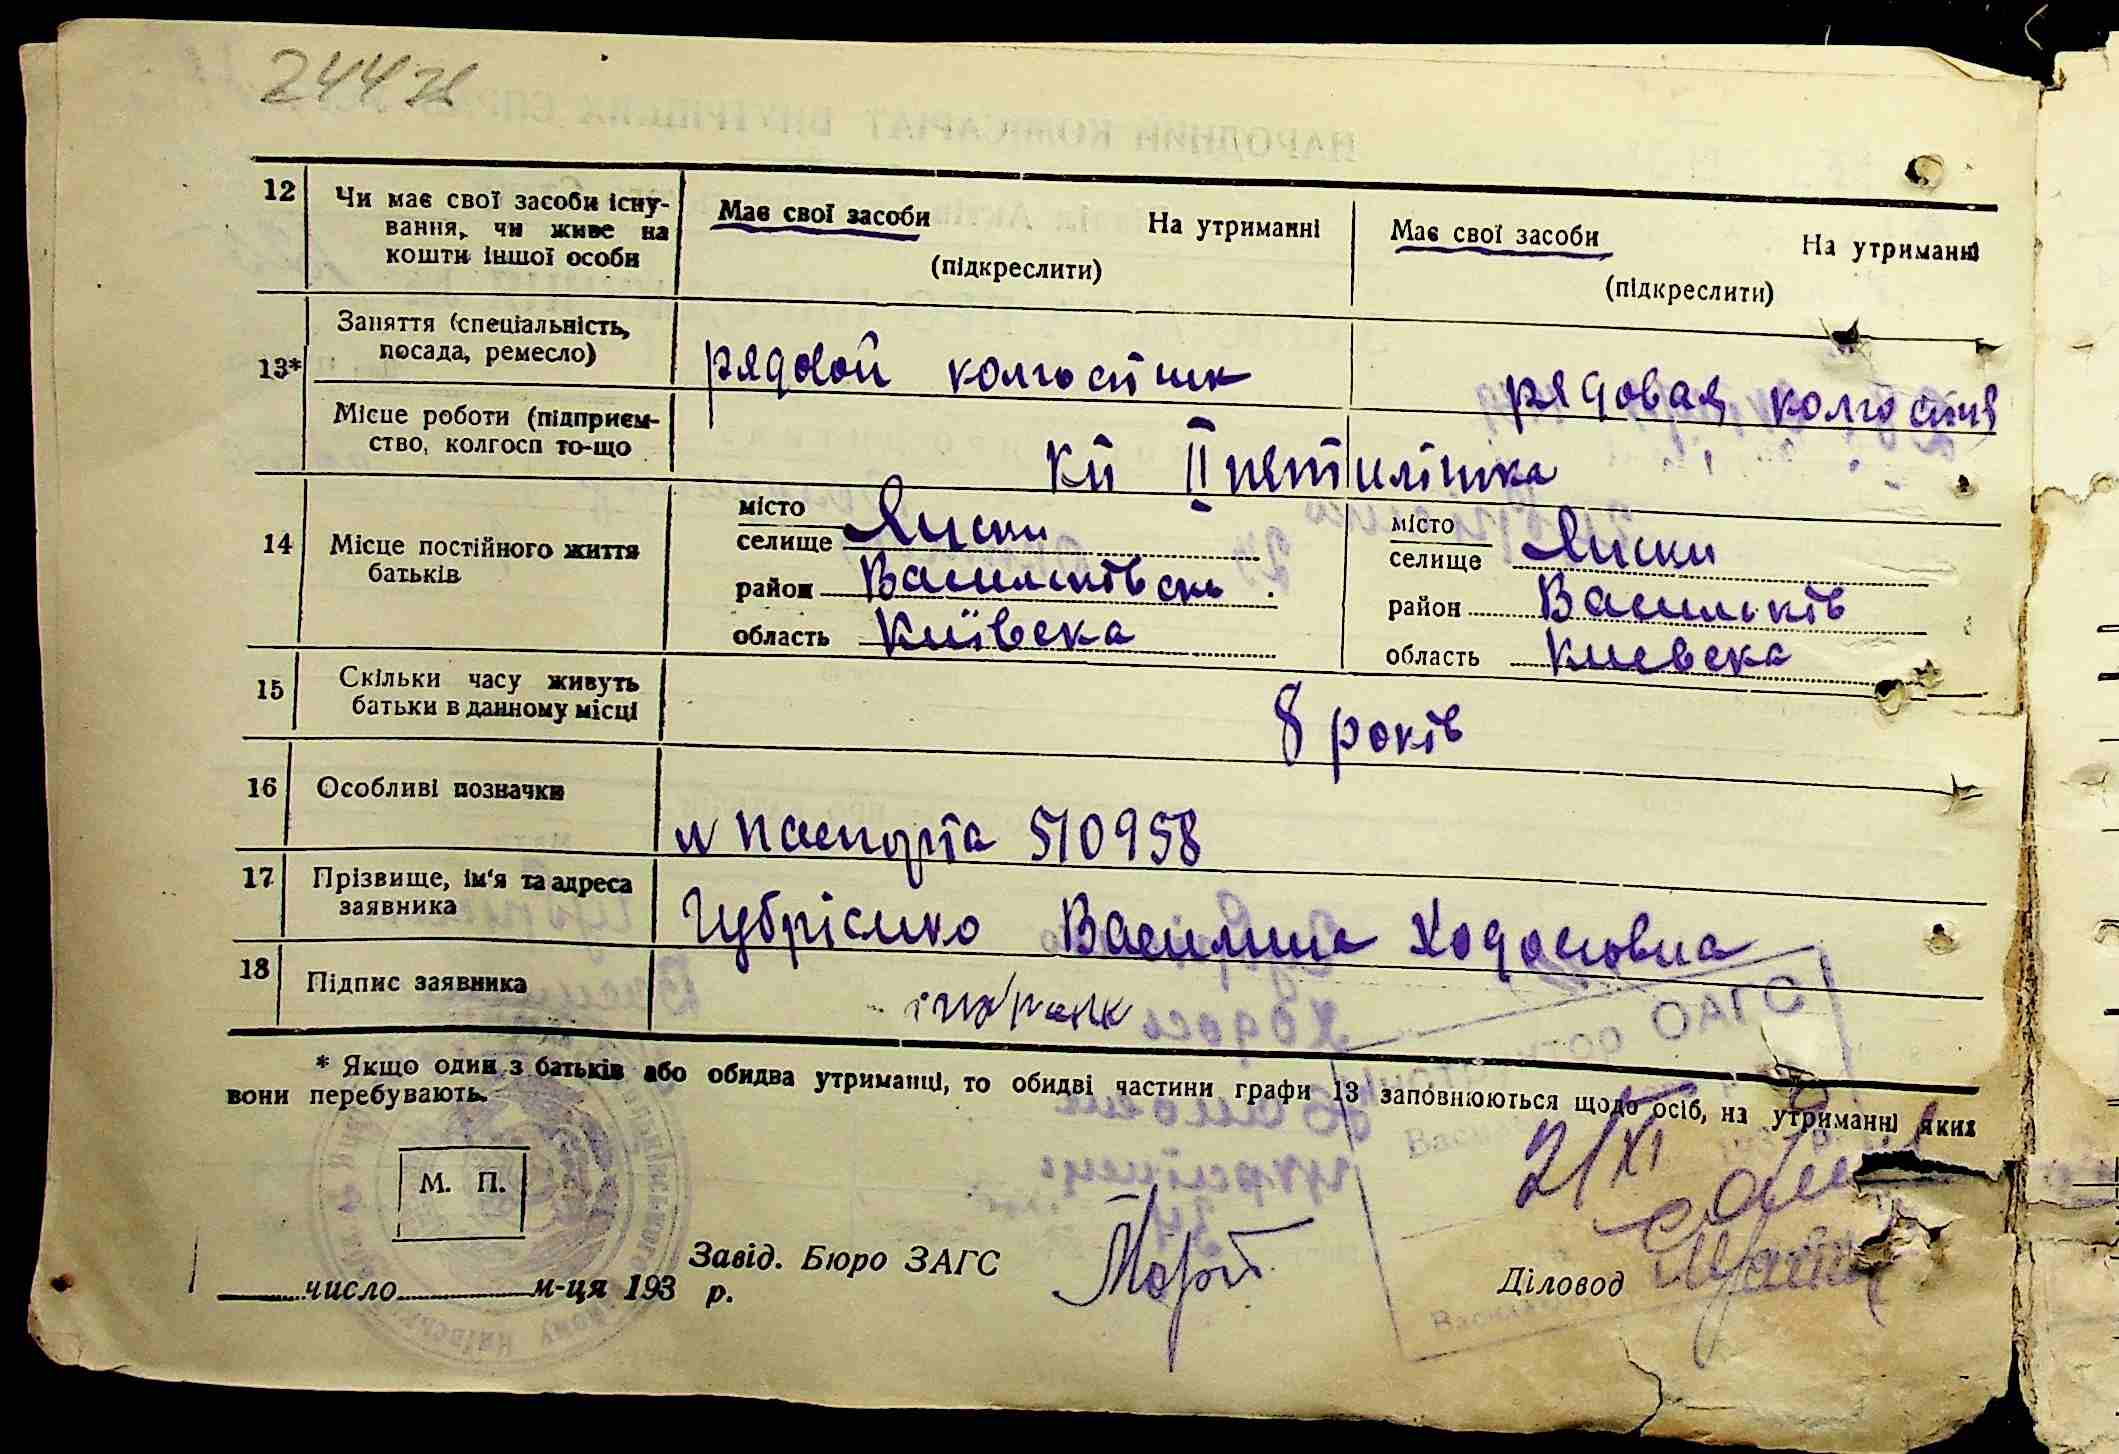 244
12 Чи має свої засоби існу-
вання, чи живе на
кошти іншої особи
Має свої засоби На утриманні
(підкреслити)
Має свої засоби На утриманні
(підкреслити)
13* Заняття (спеціальність,
посада, ремесло)
рядовой колгоспник
рядовая колгоспн
Місце роботи (підприєм-
ство, колгосп то-що
кп II пятилітка
14 Місце постійного життя
батьків
місто
селище
район
область Київска
місто
селище
район Васильків
область Киевска
15 Скільки часу живуть
батьки в данному місці
8 років
16 Особливі позначки
№ паспорта 510958
17 Прізвище, ім'я та адреса
заявника
Василина Ходосовна
18 Підпис заявника
* Якщо один з батьків або обидва утриманці, то обидві частини графи 13 заповнюються щодо осіб, на утриманні яких
вони перебувають.
М. П.
21/XI
Завід. Бюро ЗАГС
Діловод
число м-ця 193 р.